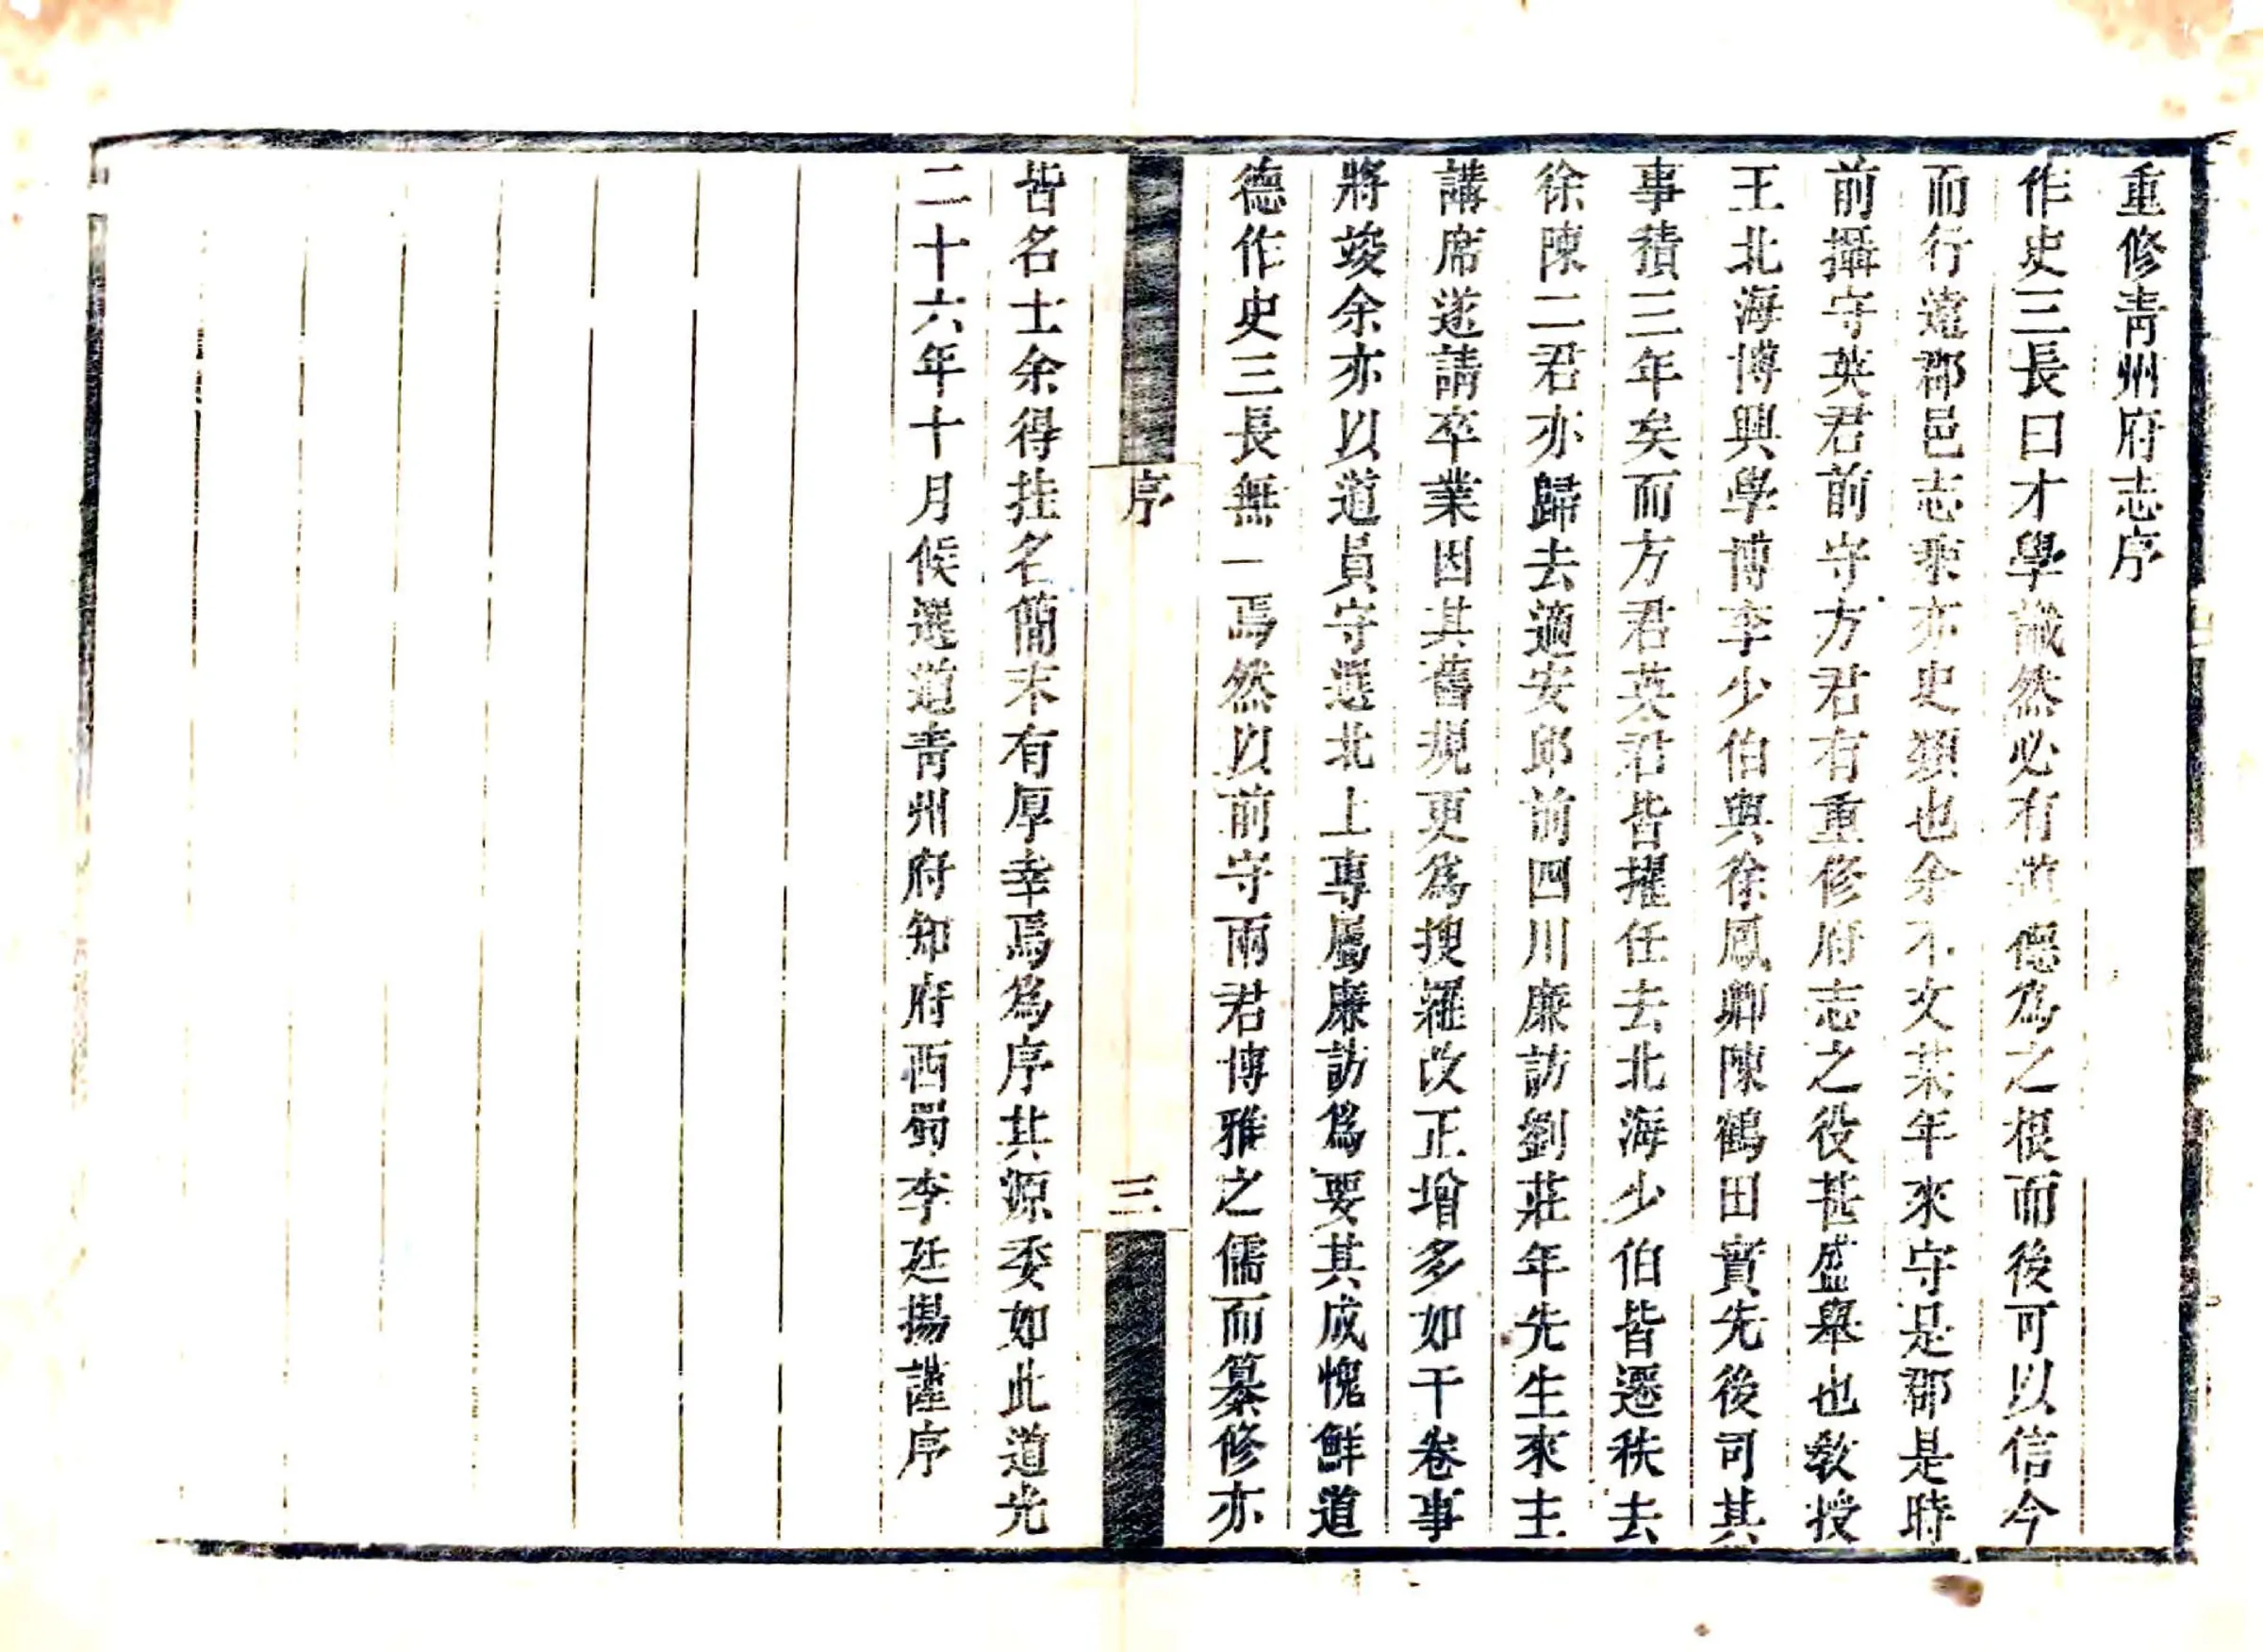 重修青州府志序
作史三長曰才學識然必有道德為之根而後可以信今
而行遠郡邑志乘亦史類也余不文某年來守是郡是時
前攝守英君前守方君有重修府志之役甚盛舉也敎授
王北海博興學博李少伯與徐鳳卿陳鶴田實先後司其
事積三年矣而方君英君皆擢任去北海少伯皆遷秩去
徐陳二君亦歸去適安邱前四川廉訪劉莊年先生來主
講席遂請卒業因其舊規更為搜羅改正增多如干卷事
將竣余亦以道員守選北上專屬廉訪為要其成愧鮮道
德作史三長無一焉然以前守兩君博雅之儒而纂修亦
序
三
皆名士余得挂名簡末有厚幸焉為序其源委如此道光
二十六年十月候選道青州府知府西蜀李廷揚謹序